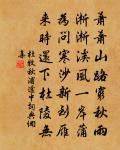 蕭蕭山路窮秋雨
淅淅溪風一岸蒲
為問寒沙新到雁
來時還下杜陵無
杜牧秋浦途中詞典網